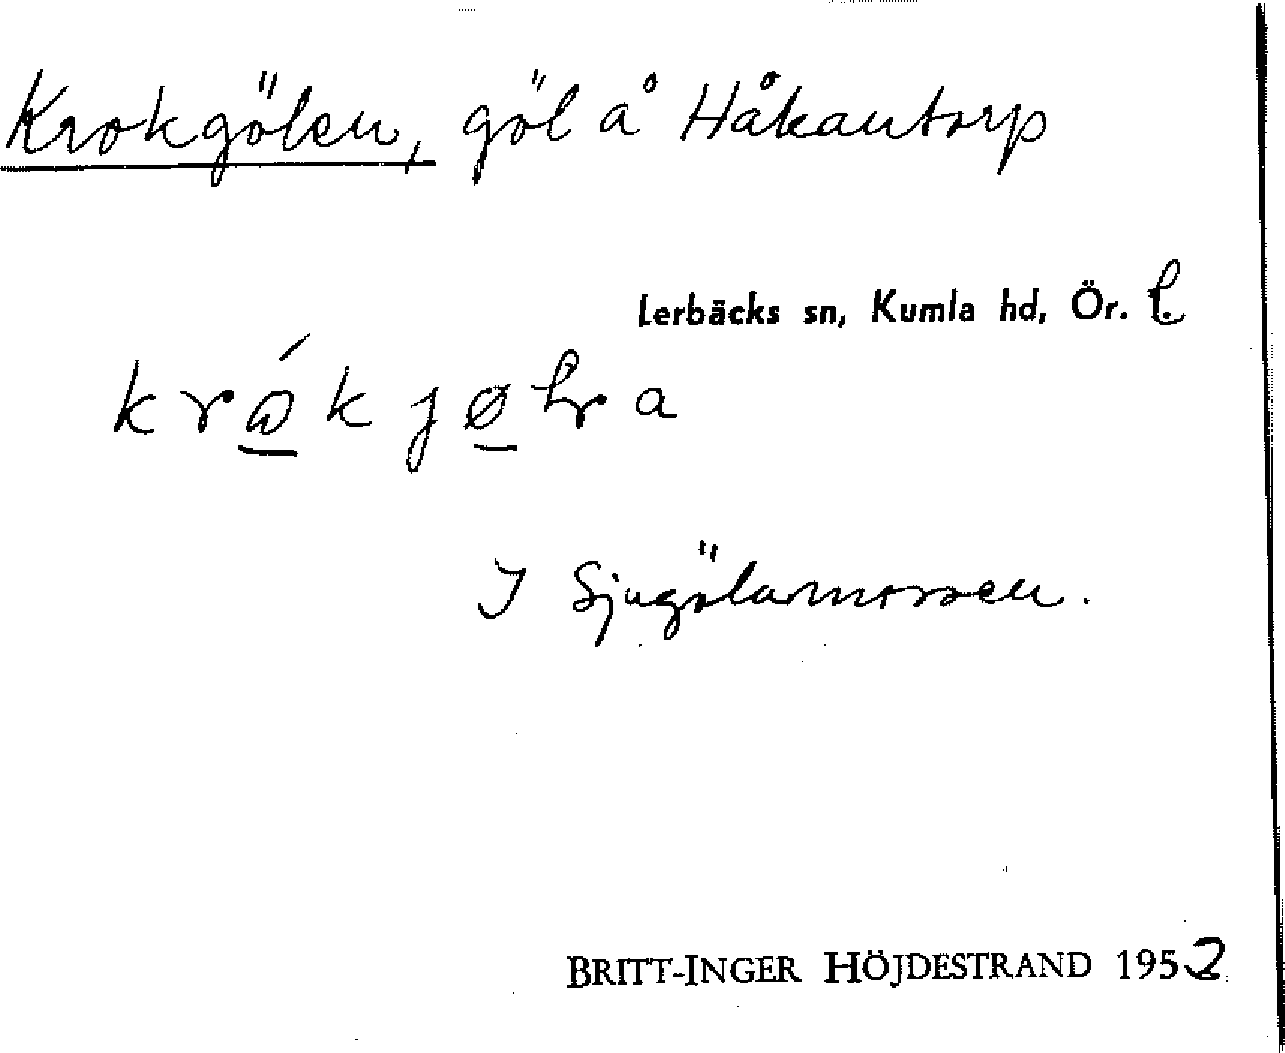 Krokgölen, göl å Håkantorp
Lerbäcks sn, Kumla hd, Ör. l.
I Sjugölarmossen.
BRITT-INGER HÖJDESTRAND 1952